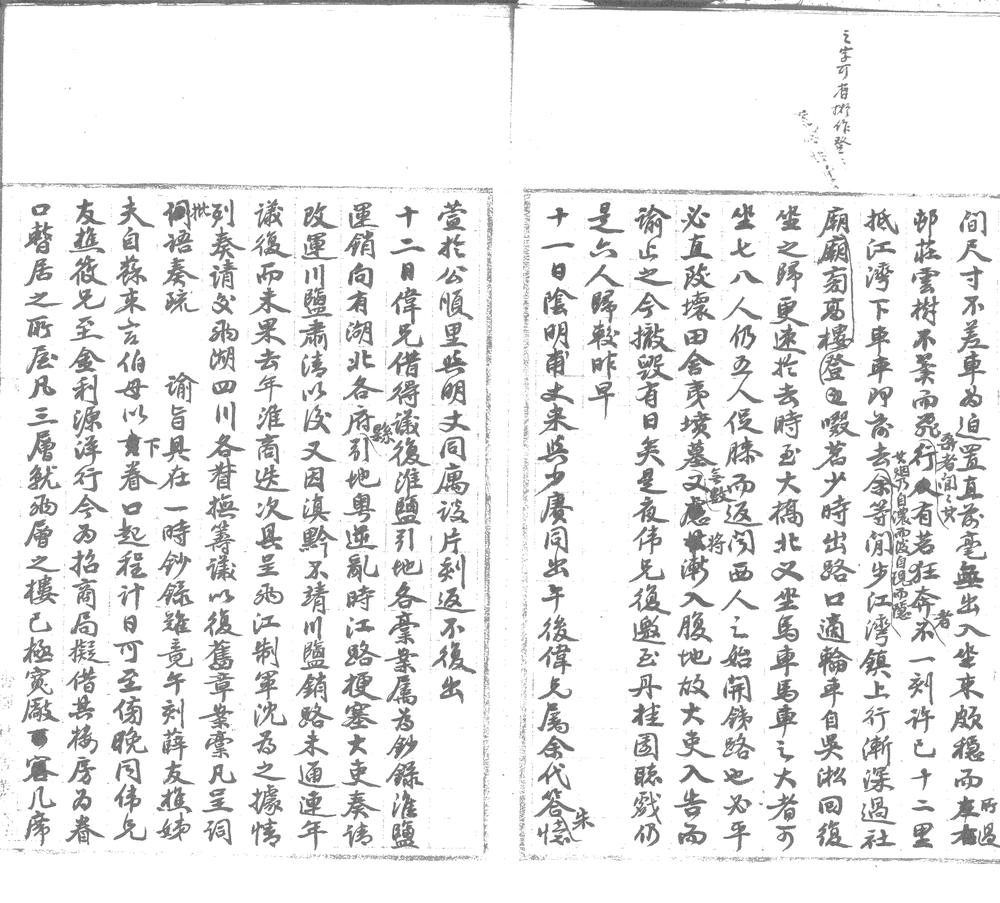 之字可省擬作登
間尺寸不差車為迫置直前毫無出入坐來頗穩而所過
邨莊雲樹不翼而飛行人有若狂奔者不一刻許已十二里
抵江灣下車車即前去余等閒步江灣鎮上行漸深過社
廟廟旁高樓登之啜茗少時出路口適輪車自吳淞回復
坐之歸更速於去時至大橋北又坐馬車馬車之大者可
坐七八人仍五人促膝而返聞西人之始開鐵路也必平
必直改壞田舍夷墳墓無數又慮將漸入腹地故大吏入告而
諭止之今撤毀有日矣是夜偉兄復邀至丹桂園聽戲仍
是六人歸較昨早
十一日陰明甫丈來與少賡同出午後偉兄屬余代答朱
萱於公順里與明丈同寓談片刻返不復出
十二日偉兄借得議復淮鹽引地各稟業屬為鈔錄淮鹽
運銷向有湖北各府縣引地粵逆亂時江路梗塞大吏奏請
改運川鹽肅清以後又因滇黔不靖川鹽銷路未通連年
議復而未果去年淮商迭次具呈兩江制軍沈為之據情
列奏請交兩湖四川各督撫籌議以復舊章業稟凡呈詞
批語奏疏　諭旨具在一時鈔錄難竟午刻薛友樵姊
夫自蘇來言伯母以下眷口起程計日可至傍晚同偉兄
友樵筱兄至金利源洋行今為招商局擬借其棧房為眷
口暫居之所屋凡三層就兩層之樓已極寬敞可容几席